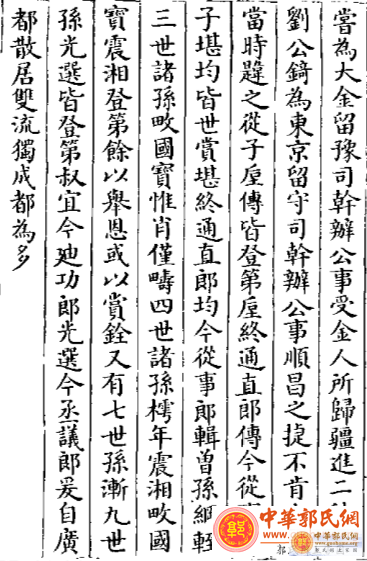 嘗為大金留豫司幹辦公事受金人所歸疆進二
劉公錡為東京留守司幹辦公事順昌之捷不肯
當時韙之從子厔傳皆登第厔終通直郎傳今從
子堪均皆世賞堪終通直郎均今從事郎輯曾孫絪輊
三世諸孫畋國寶惟肖僅疇四世諸孫樗年震湘畋國
寶震湘登第餘以舉恩或以賞銓又有七世孫漸九世
孫光選皆登第叔宜今迪功郎光選今丞議郎爰自廣
都散居雙流獨成都為多
中華郭氏網
中華郭氏網